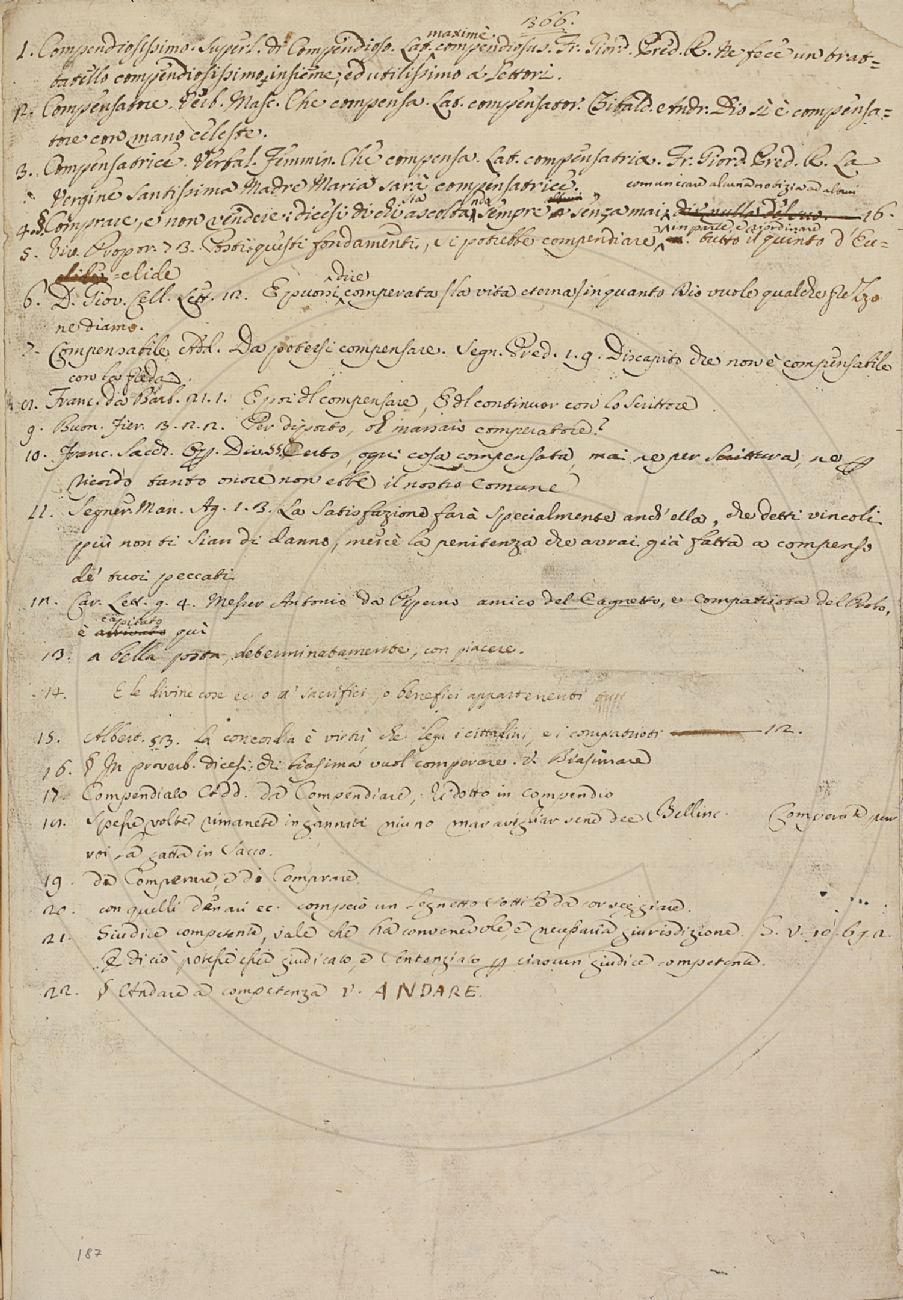 366.
1. Compendiosissimo. Superl. di Compendioso. Lat. maximè compendiosus. Fr. Giord. Pred. R. Ne fece un trat=
tatello compendiosissimo insieme, ed utilissimo a' Lettori.
2. Compensatore. Verb. Masc. Che compensa. Lat. compensator. Tibald. Andr. Dio si è compensa=
tore con mano celeste.
3. Compensatrice. Verbal. Femmin. Che compensa. Lat. compensatrix. Fr. Giord. Pred. R. La
Vergine Santissima Madre Maria sarà compensatrice.
4. § Comprare, e non vendere: dicesi di chi sta ascoltando sempre senza mai comunicare alcuna notizia ad altrui 16.
5. Viv. Propor. 73. Posti questi fondamenti, si potrebbe compendiare, in parte, e riordinare tutto il quinto d'Eu=
=clide
6. D. Giov. Cell. Lett. 12. E puossi dire comperata la vita eterna, in quanto Dio vuole qualche prezzo
ne diamo.
7. Compensabile Add. Da potersi compensare. Segn. Pred. 1. 9. Discapito che non è compensabile
con la preda.
8. Franc. da Barb. 21. 1. E poi del compensare, E del continuar con lo Scrittore
9. Buon. Fier. 3. 2. 2. Per diporto, o massaio comperatore?
10. Franc. Sacch. Op. Div. Certo, ogni cosa compensata, mai nè per Scrittura, nè p
ricordo tanto onore non ebbe il nostro Comune
11. Segner. Man. Ag. 1. 3. La Satisfazione farà specialmente anch'ella, che detti vincoli
più non ti sian di danno, mercè la penitenza che avrai già fatta a compenso
de' tuoi peccati.
12. Car. Lett. 9. 4. Messer Antonio da Piperno amico del Cagnetto, e compatriota del Molo,
è capitato qui
13. a bella posta, determinatamente, con piacere.
14. E le divine cose ec. o a' sacrifici, o benefici appartenenti
15. Albert. 53. La concordia è virtù, che lega i cittadini, e i compatrioti 12.
16. § In proverb. dicesi: Chi biasima vuol comperare. v. Biasimare
17. Compendiato Add. da Compendiare, Ridotto in compendio
18. Spesse volte rimanete ingannati niuno maravigliar sene dee Bellinc. Comperate pur
voi la gatta in sacco.
19. da Comperare, e da Comprare.
20. con quelli danari ec. comperò un legnetto sottile da corseggiare.
21. Giudice competente, vale che ha convenevole, e necessaria giurisdizione. G. V. 10. 69. 2.
E di ciò potesse esser giudicato, e sentenziato p ciascun giudice competente.
22. § Andare a competenza v. ANDARE.
187